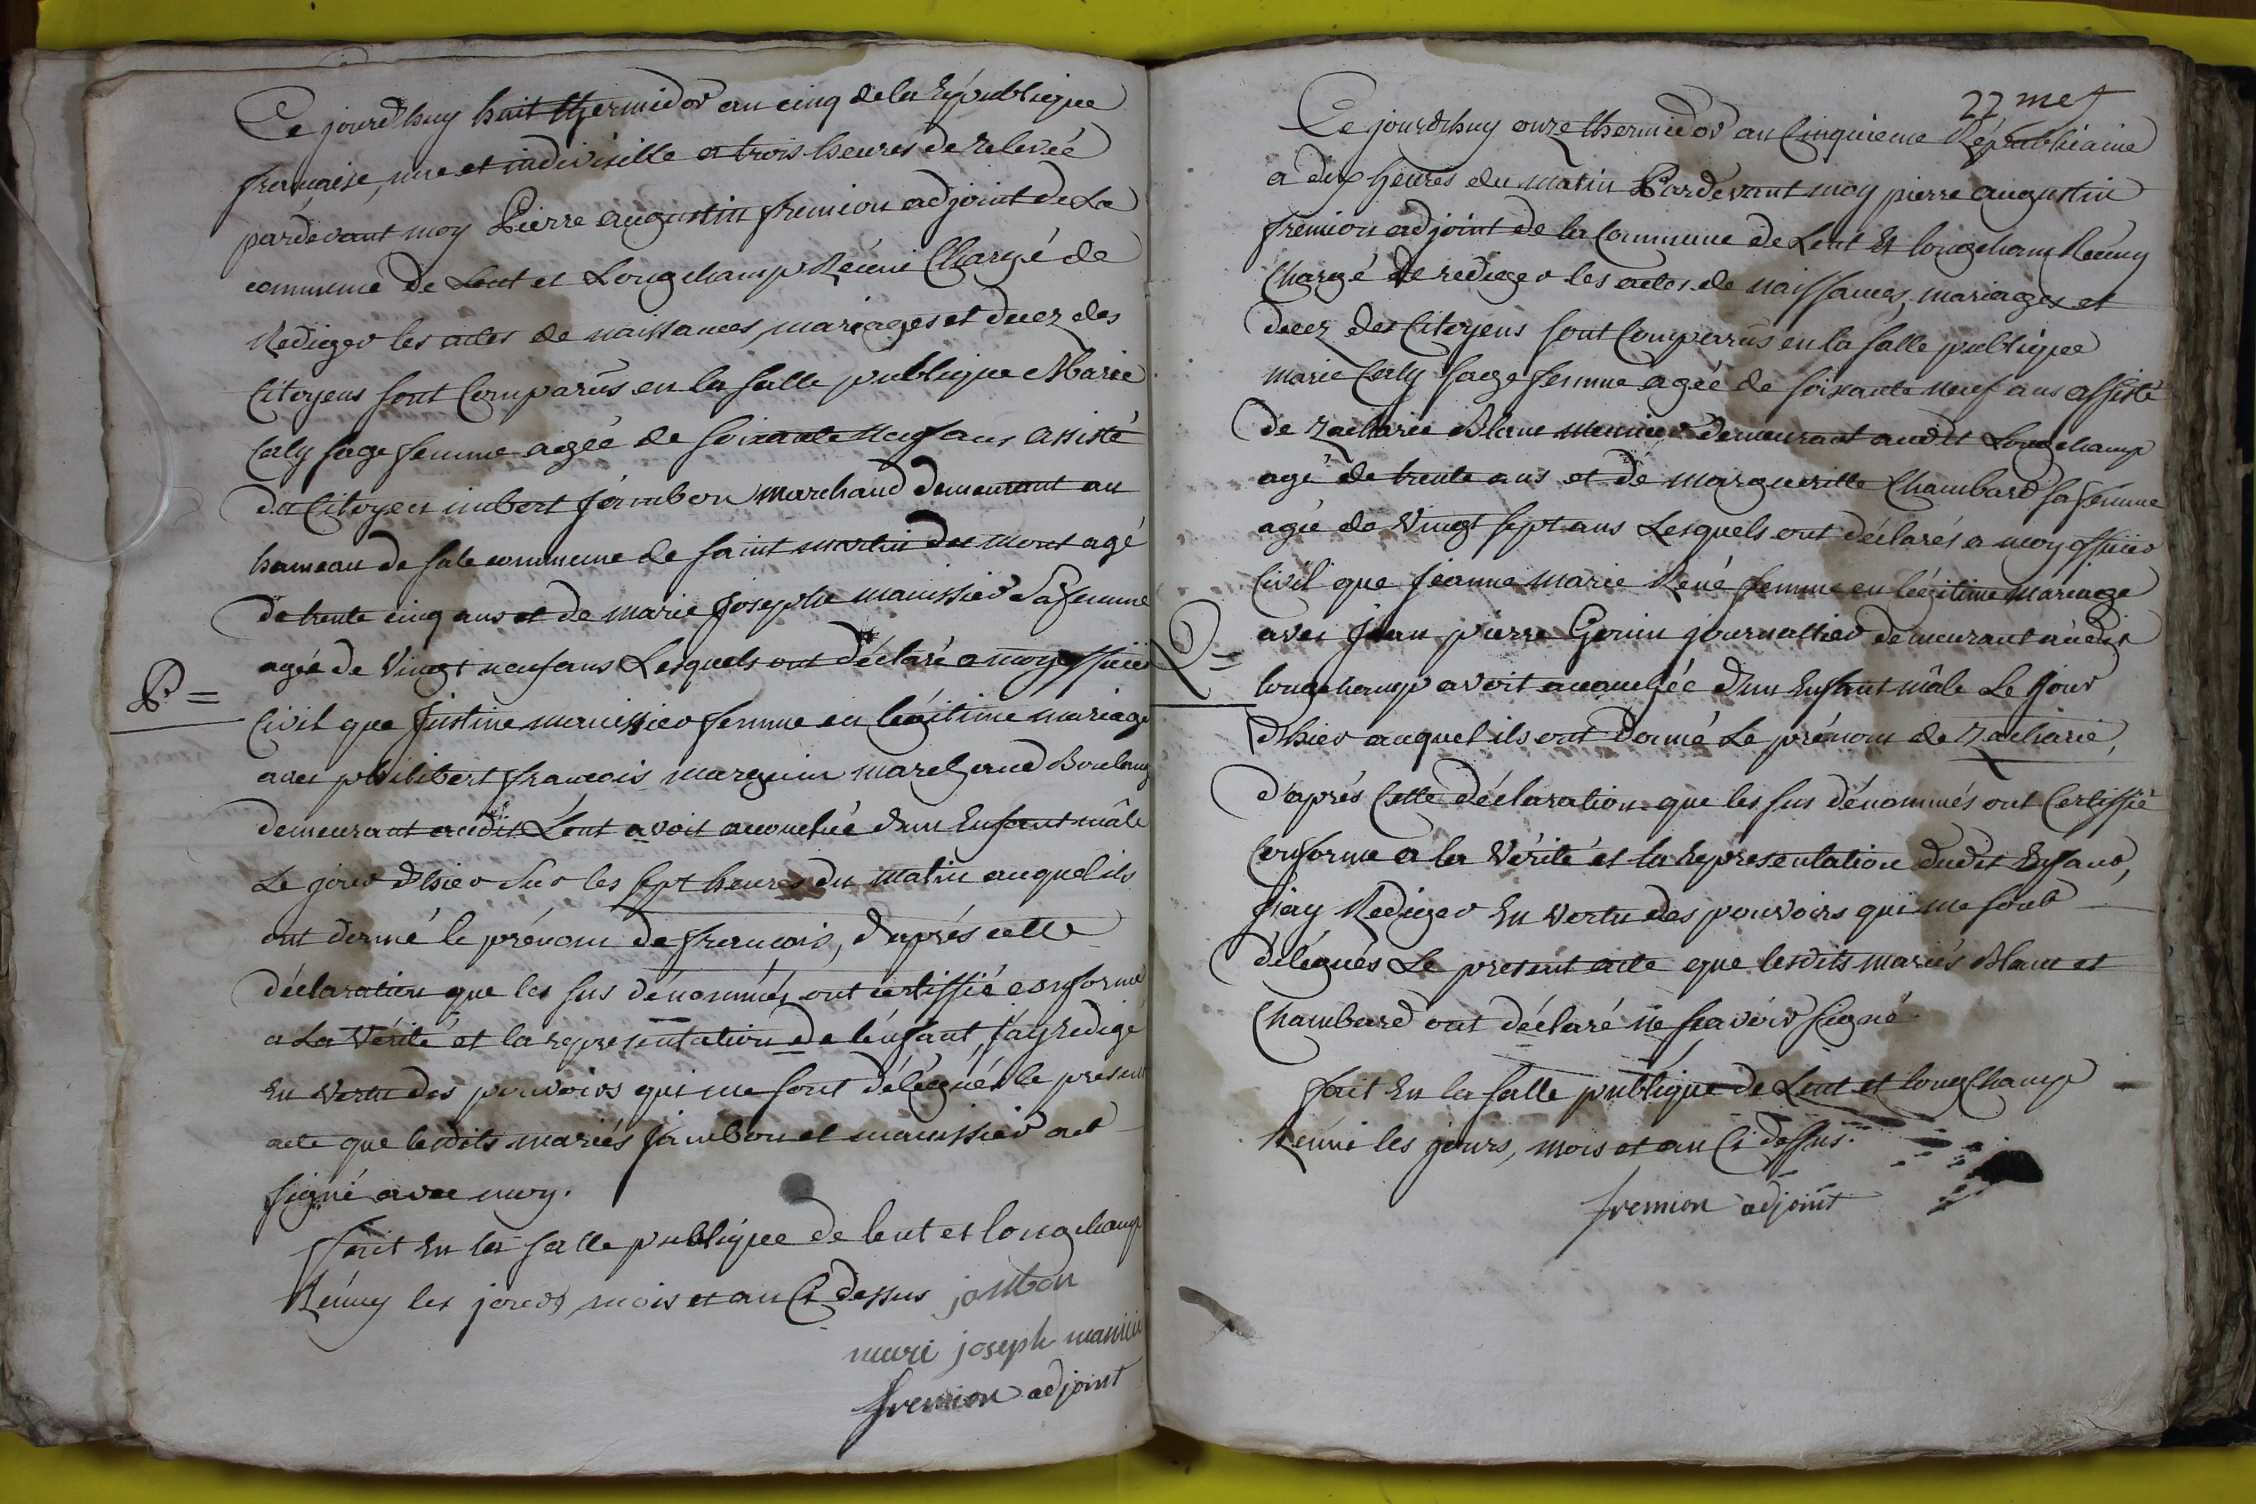 Ce jourd'huy huit thermidor an cinq de la République
française, une et indivisille a trois heures de relevée
pardevant moy Pierre augustin fremion adjoint de La
commune de Lent et Longchamp Réuni Chargé de
Rediger les actes de naissances, mariages et decez des
Citoyens sont Comparûs en la salle publique Marie
Caly sage femme agée de soixante neuf ans assisté
du Citoyen imbert jambon marchand demeurant au
hameau de sale commune de saint martin du mont agé
de trente cinq ans et de marie josephe manissier sa femme
agée de Vingt neuf ans Lesquels ont déclaré a moy officier
P =
Civil que justine manissier femme en légitime mariage
avec philibert françois marguin marchand Boulang
demeurant audit Lent avoit acouchée d'un Enfant mâle
Le jour d'hier sur les sept heures du matin auquel ils
ont donné le prénom de françois, d'aprés cette
déclaration que les sus dénommés ont certiffié conforme
a La Vérité et la representation de l'enfant, j'ay redigé
En vertu des pouvoirs qui me sont délégués le present
acte que lesdits mariés jambon et manissier ont
signé avec moy.
fait En la salle publique de lent et longchamp
Réuny les jours, mois et an Ci dessus jambon
marie joseph manissie
fremion adjoint
22 me f
Ce jourd'huy onze thermidor an Cinquieme Républicaine
a dix heures du matin Pardevant moy pierre augustin
fremion adjoint de la Commune de Lent Et longchamp Réuny
Chargé de rediger les actes de naissances, mariages et
decez des Citoyens sont Comparûs en la salle publique
marie Caly sage femme agée de soixante neuf ans assisté
de Zacharie Blanc meunier demeurant audit Longchamp
agé de trente ans et de margueritte Chambard sa femme
agée de Vingt sept ans Lesquels ont déclarés a moy officier
Civil que jeanne marie René femme en légitime Mariage
avec jean pierre Gonin journallier demeurant audit
P =
longchamp avoit acouchée d'un Enfant mâle Le jour
d'hier auquel ils ont donné Le prénom de Zacharie,
d'aprés Cette déclaration que les sus dénommés ont Certiffié
Conforme a la Vérité et la representation dudit Enfant,
j'ay Rediger En vertu des pouvoirs qui me sont
délégués Le present acte que lesdits mariés Blanc et
Chambard ont déclaré ne scavoir signé.
fait En la salle publique de Lent et longchamp
Réuni les jours, mois et an Ci dessus.
fremion adjoint